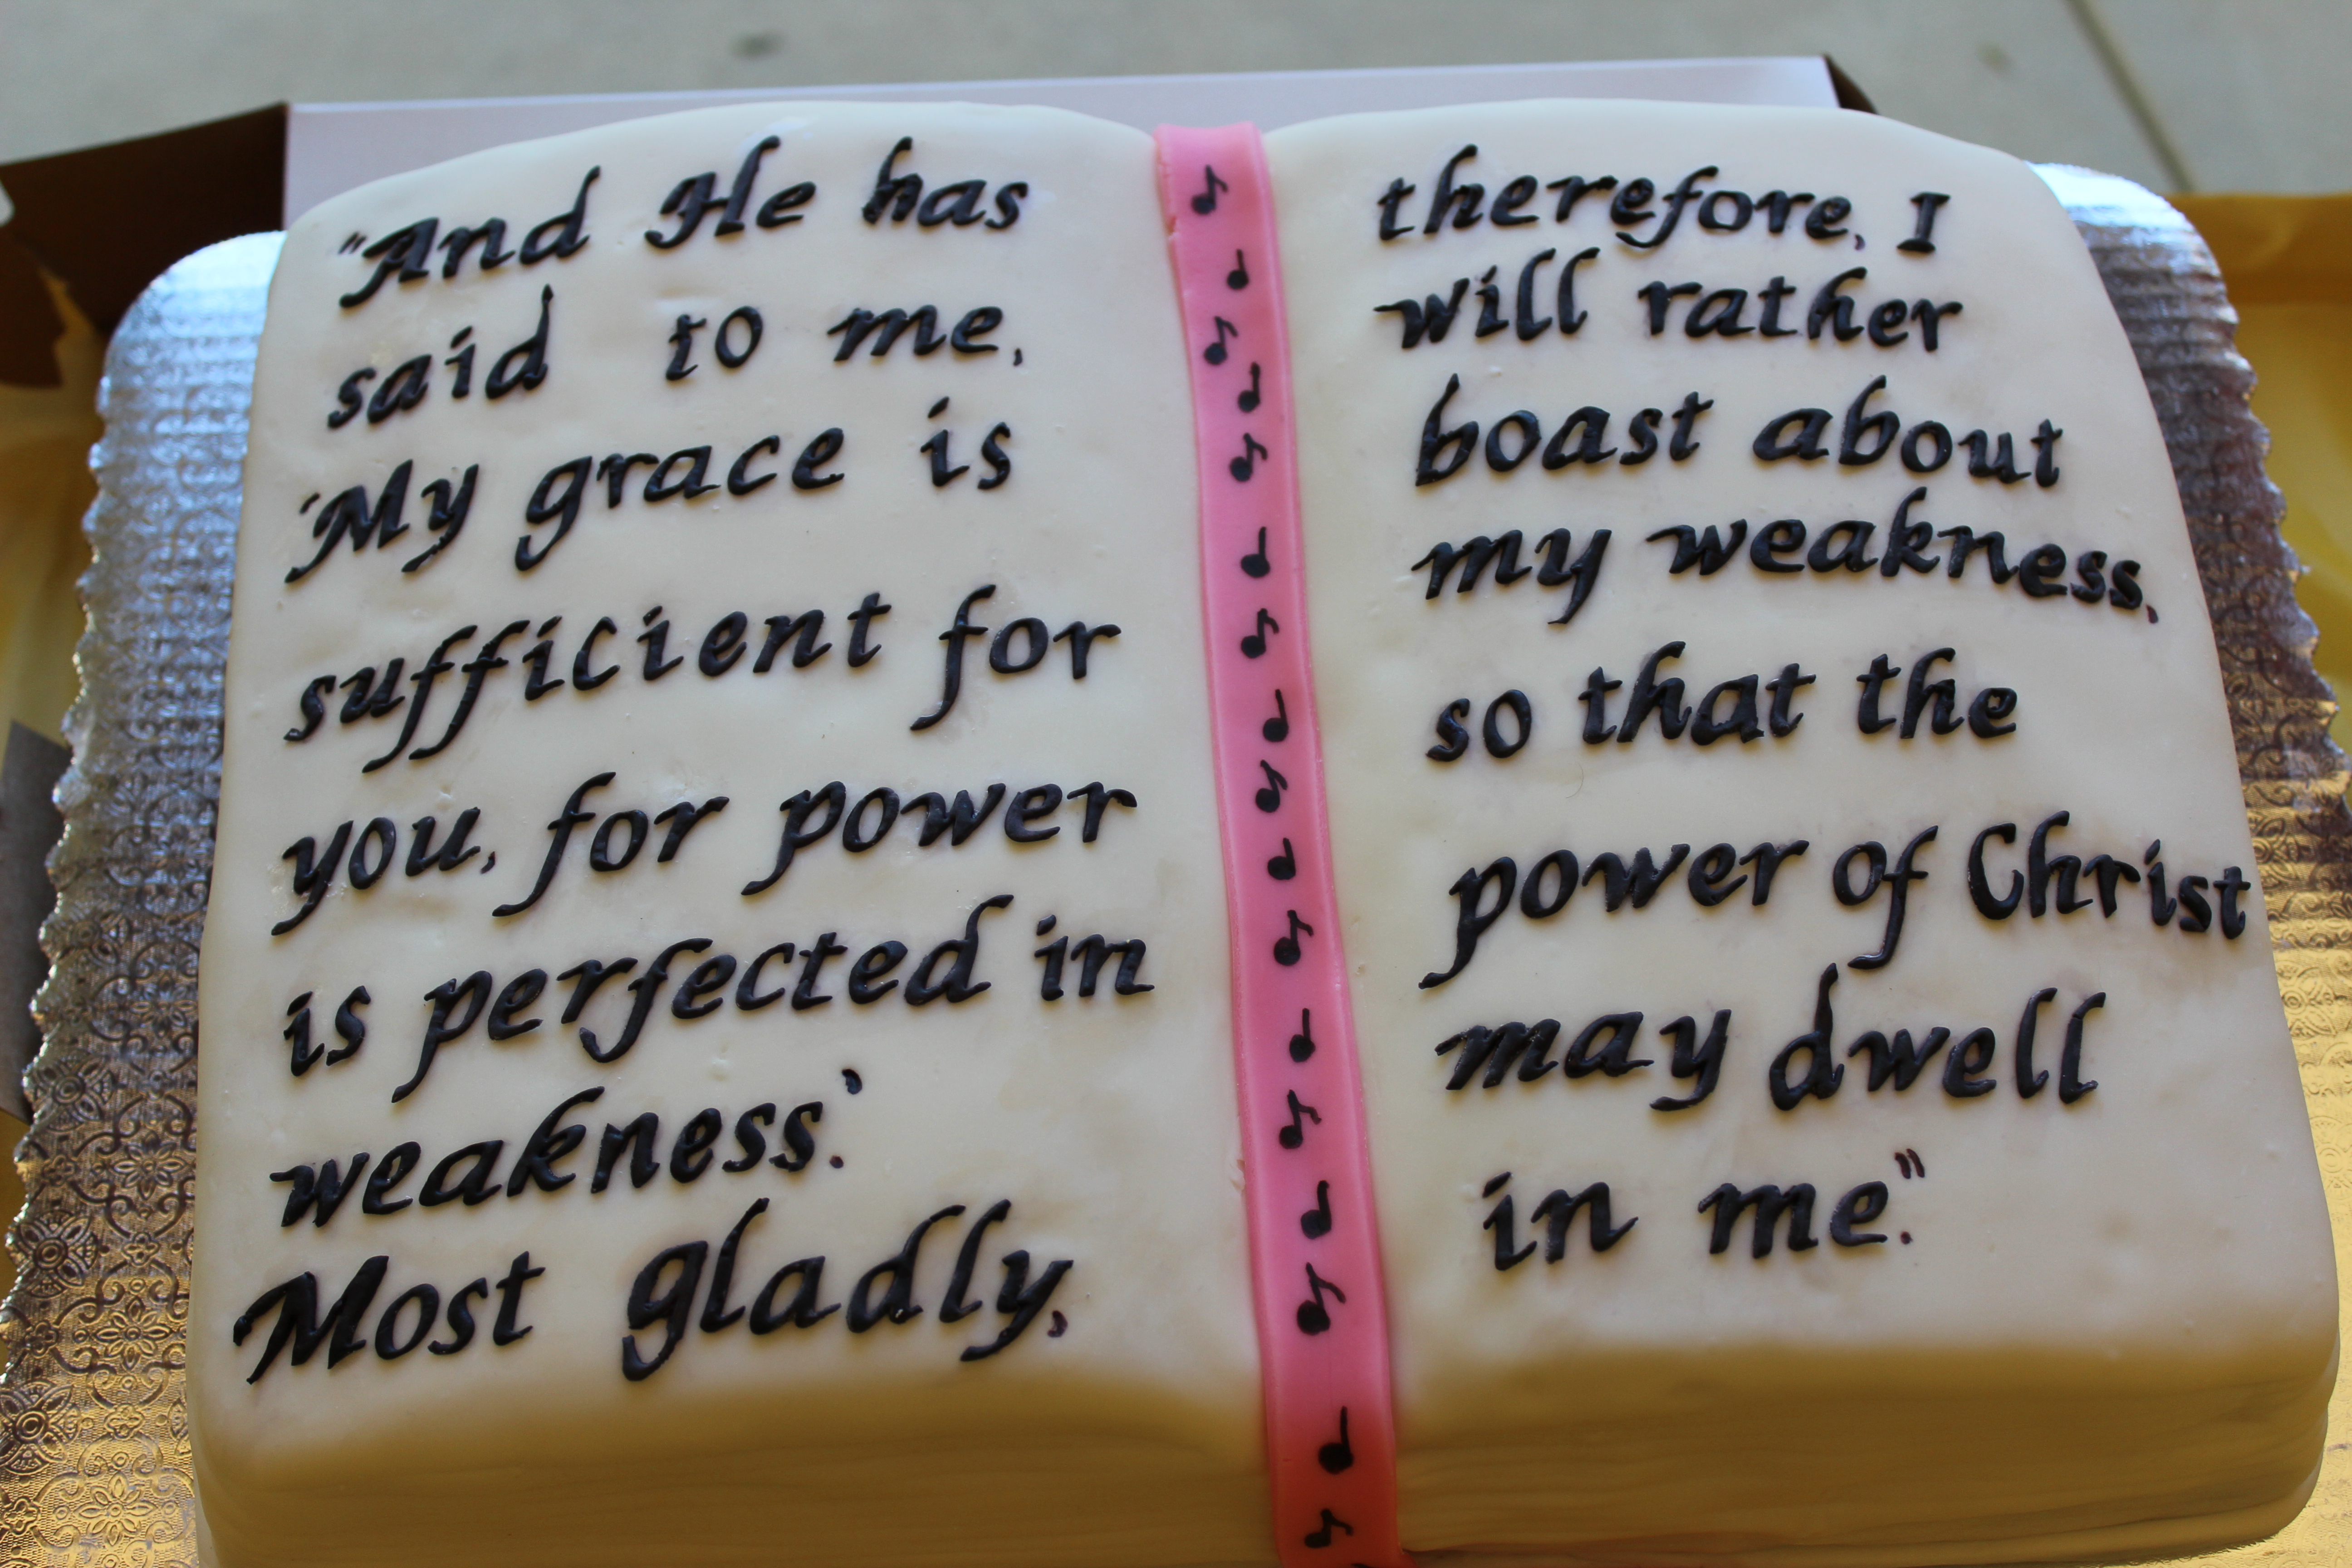 "And He has
said to me,
'My grace is
sufficient for
you, for power
is perfected in
weakness.'
Most gladly,
therefore, I
will rather
boast about
my weakness,
so that the
power of Christ
may dwell
in me."